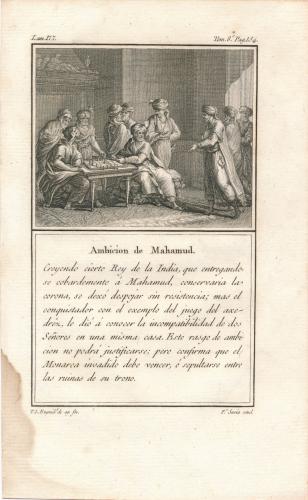 Lam. IV.ª Tom. 8.º Pag. 154.
Ambicion de Mahamud.
Creyendo cierto Rey de la India, que entregando-
se cobardemente á Mahamud, conservaria la
corona, se dexó despojar sin resistencia; mas el
conquistador con el exemplo del juego del axe-
drez, le dió a conocer la incompatibilidad de dos
Señores en una misma casa. Este rasgo de ambi-
cion no podrá justificarse; pero confirma que el
Monarca invadido debe vencer, ó sepultarse entre
las ruinas de su trono.